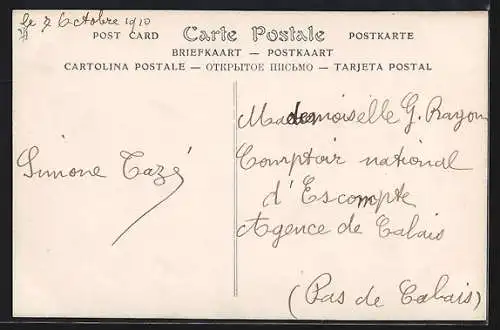 le 7 Octobre 1910
POST CARD Carte Postale POSTKARTE
BRIEFKAART — POSTKAART
CARTOLINA POSTALE — ОТКРЫТОЕ ПИСЬМО — TARJETA POSTAL
Simone Tazé
Mademoiselle G. Rayon
Comptoir national
d'Escompte
Agence de Calais
(Pas de Calais)